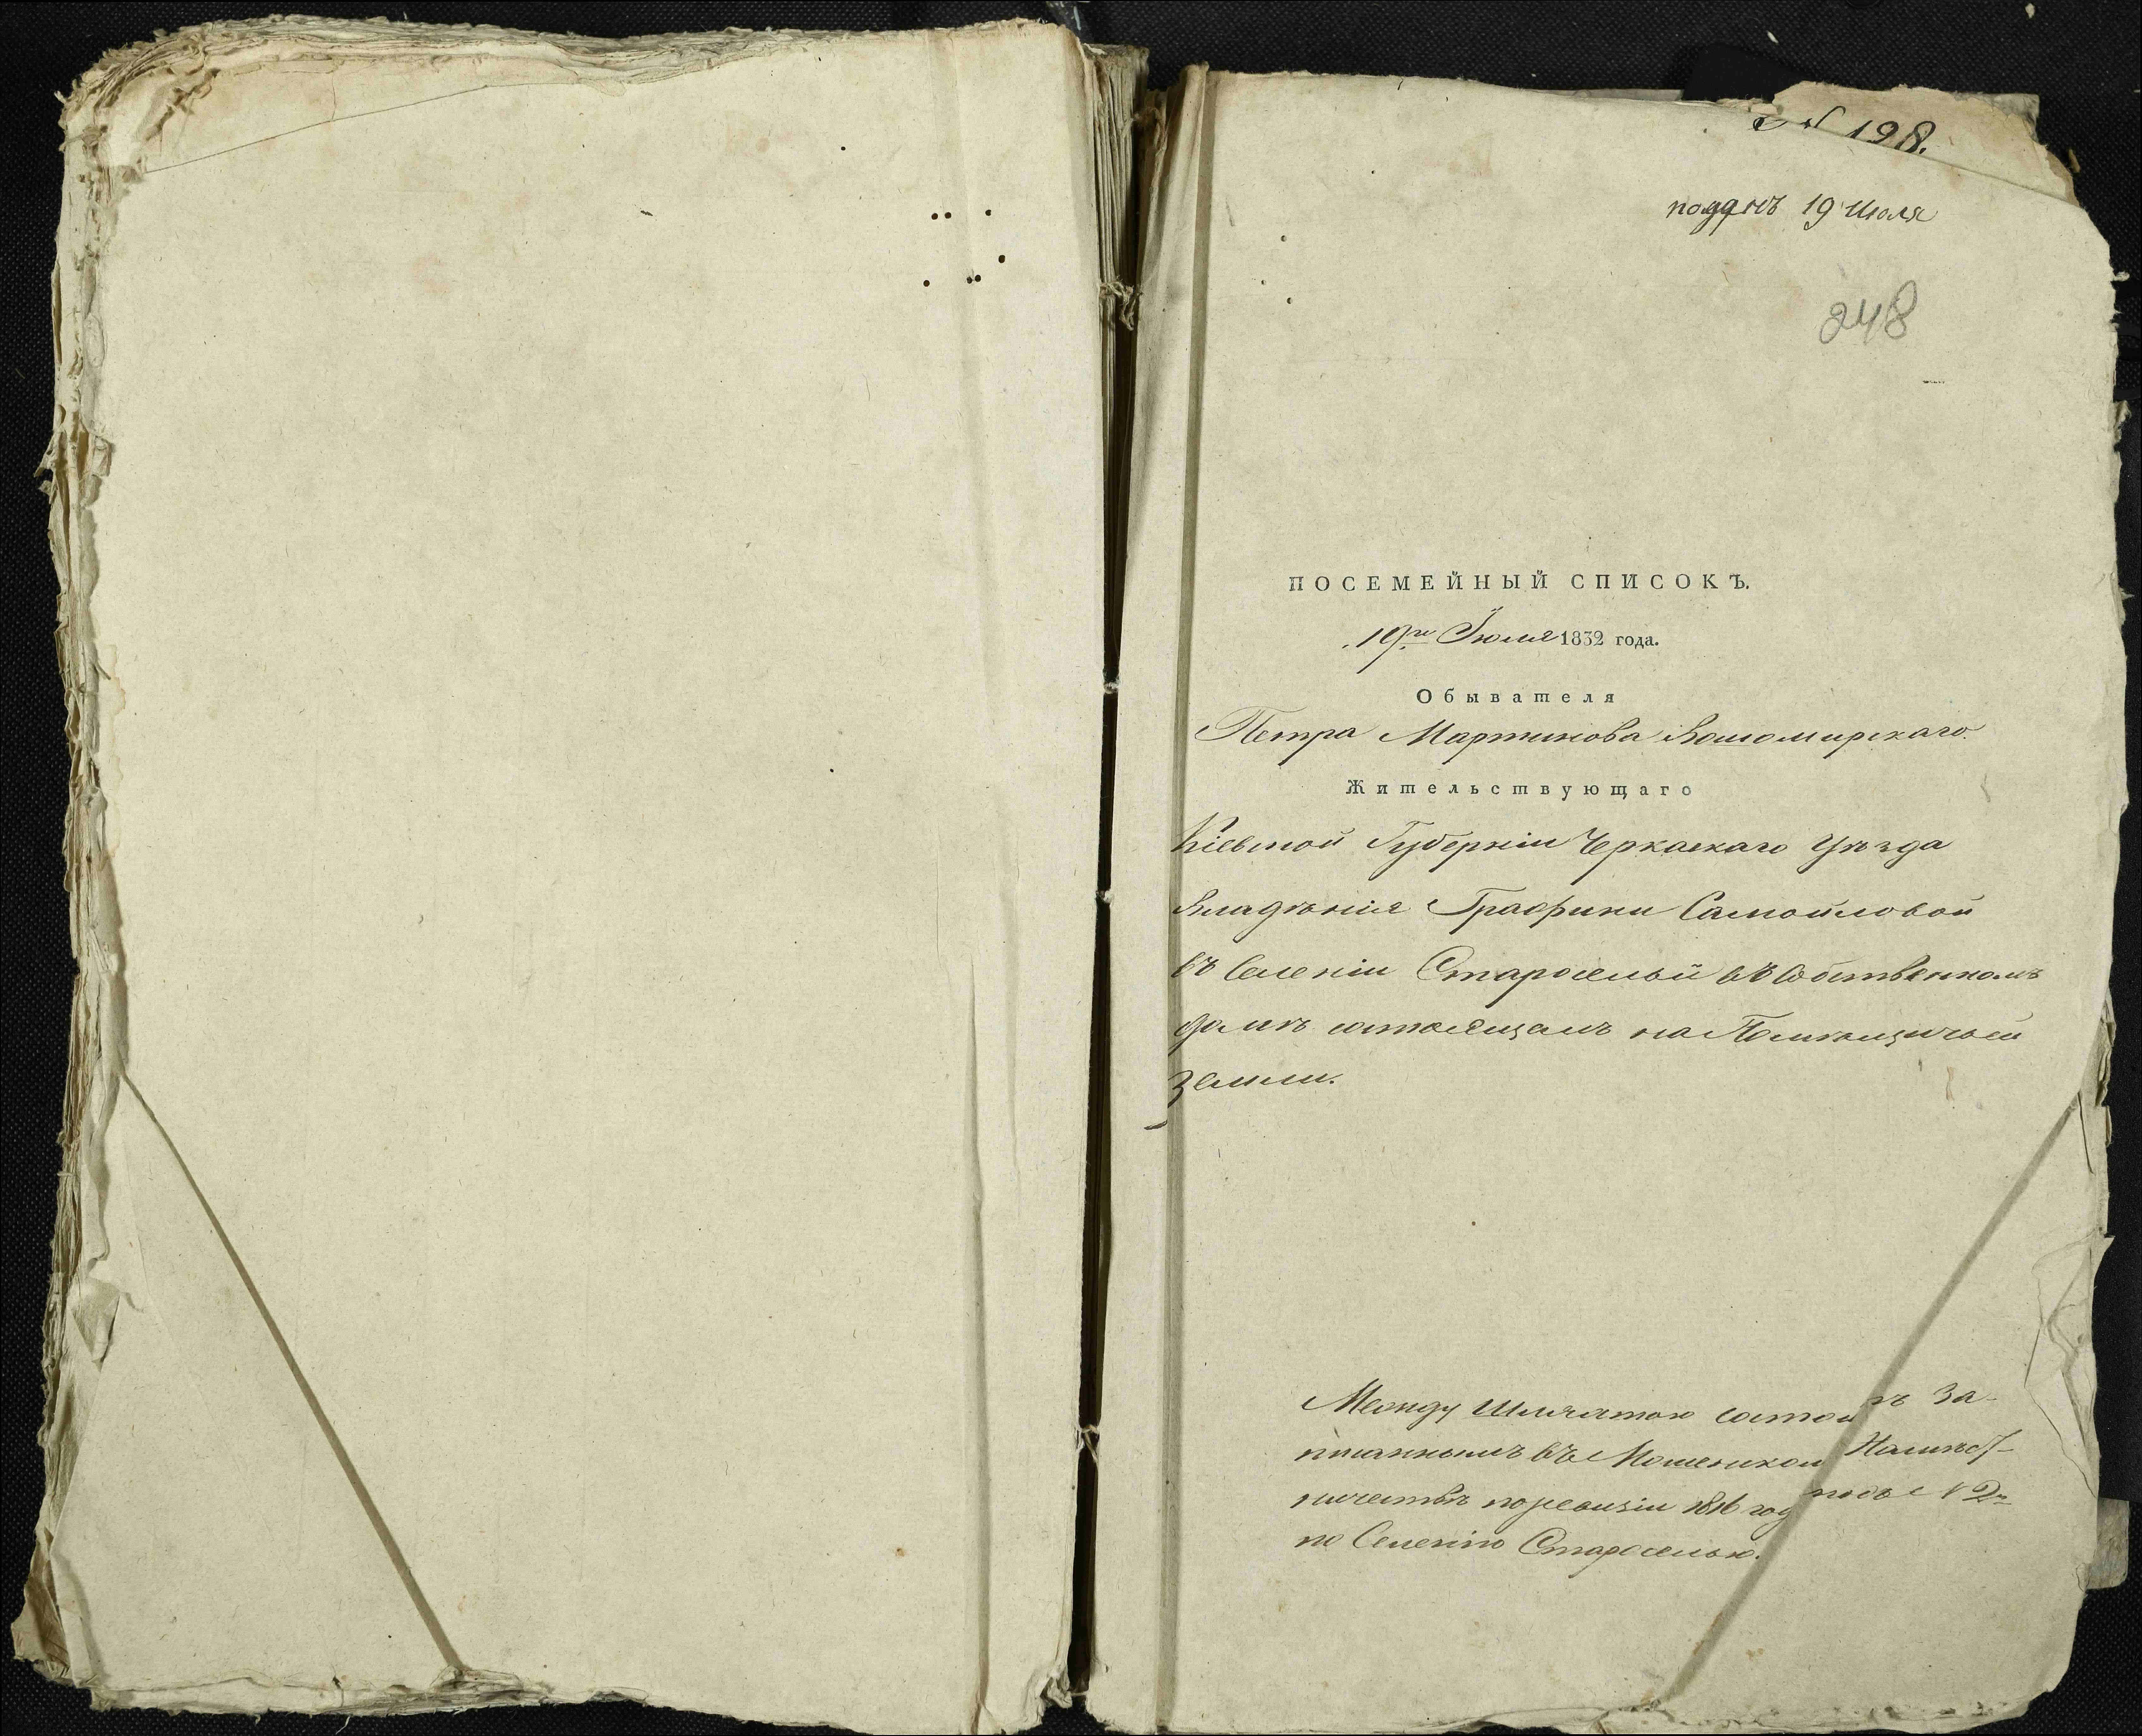 № 198.
поданъ 19 Июля
248
ПОСЕМЕЙНЫЙ СПИСОКЪ.
19го Іюля 1832 года.
Обывателя
Петра Мартинова
Жительствующаго
Кіевской Губерніи Черкаскаго Уѣзда
Владѣнія Графини Самойловой
въ Селеніи Староселье въ Собственномъ
домѣ состоящемъ на Помѣщичьей
Земли.
Между Шляхтою состоитъ за-
писаннымъ въ Мошенском Намѣст-
ничествѣ по ревизіи 1816 год подъ № 2м
по Селенію Староселью.